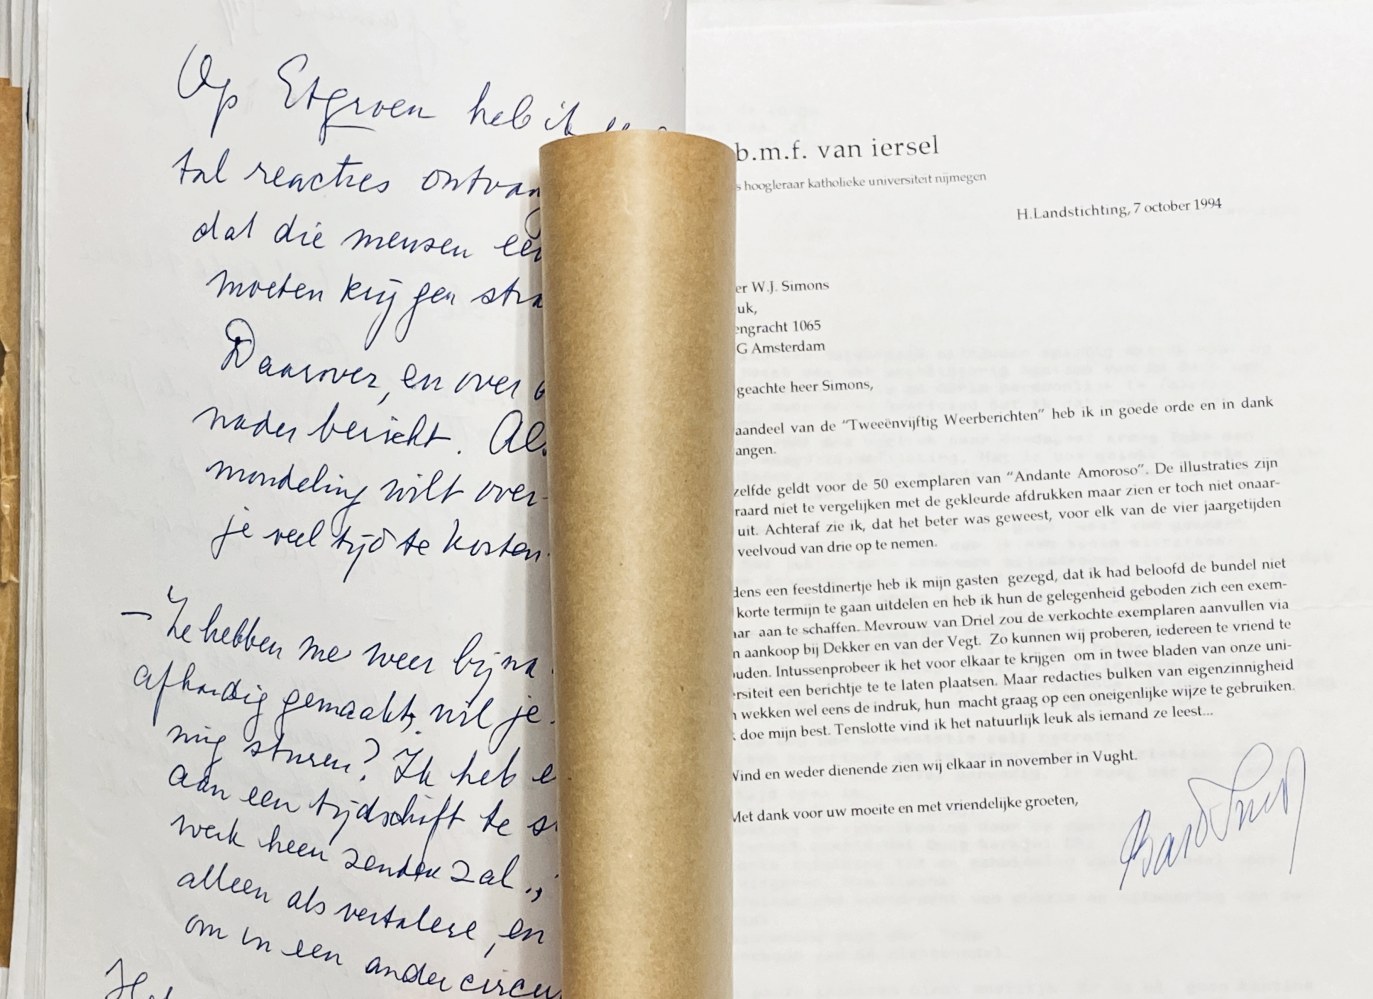 Op Etgroen heb ik
tal reacties ontvan
dat die mensen een
moeten krijgen stra
Daarover, en over
nader bericht. Als
mondeling wilt over-
je veel tijd te kosten.
– Ze hebben me weer bijna
afhandig gemaakt, wil je
mij sturen? Ik heb e
aan een tijdschift te s
werk heen zenden zal.,
alleen als vertalere, en
om in een ander circu
b.m.f. van iersel
s hoogleraar katholieke universiteit nijmegen
H.Landstichting, 7 october 1994
er W.J. Simons
uk,
engracht 1065
G Amsterdam
geachte heer Simons,
aandeel van de "Tweeënvijftig Weerberichten" heb ik in goede orde en in dank
angen.
zelfde geldt voor de 50 exemplaren van "Andante Amoroso". De illustraties zijn
raard niet te vergelijken met de gekleurde afdrukken maar zien er toch niet onaar-
uit. Achteraf zie ik, dat het beter was geweest, voor elk van de vier jaargetijden
veelvoud van drie op te nemen.
dens een feestdinertje heb ik mijn gasten gezegd, dat ik had beloofd de bundel niet
korte termijn te gaan uitdelen en heb ik hun de gelegenheid geboden zich een exem-
aar aan te schaffen. Mevrouw van Driel zou de verkochte exemplaren aanvullen via
n aankoop bij Dekker en van der Vegt. Zo kunnen wij proberen, iedereen te vriend te
ouden. Intussenprobeer ik het voor elkaar te krijgen om in twee bladen van onze uni-
rsiteit een berichtje te te laten plaatsen. Maar redacties bulken van eigenzinnigheid
n wekken wel eens de indruk, hun macht graag op een oneigenlijke wijze te gebruiken.
k doe mijn best. Tenslotte vind ik het natuurlijk leuk als iemand ze leest...
Wind en weder dienende zien wij elkaar in november in Vught.
Met dank voor uw moeite en met vriendelijke groeten,